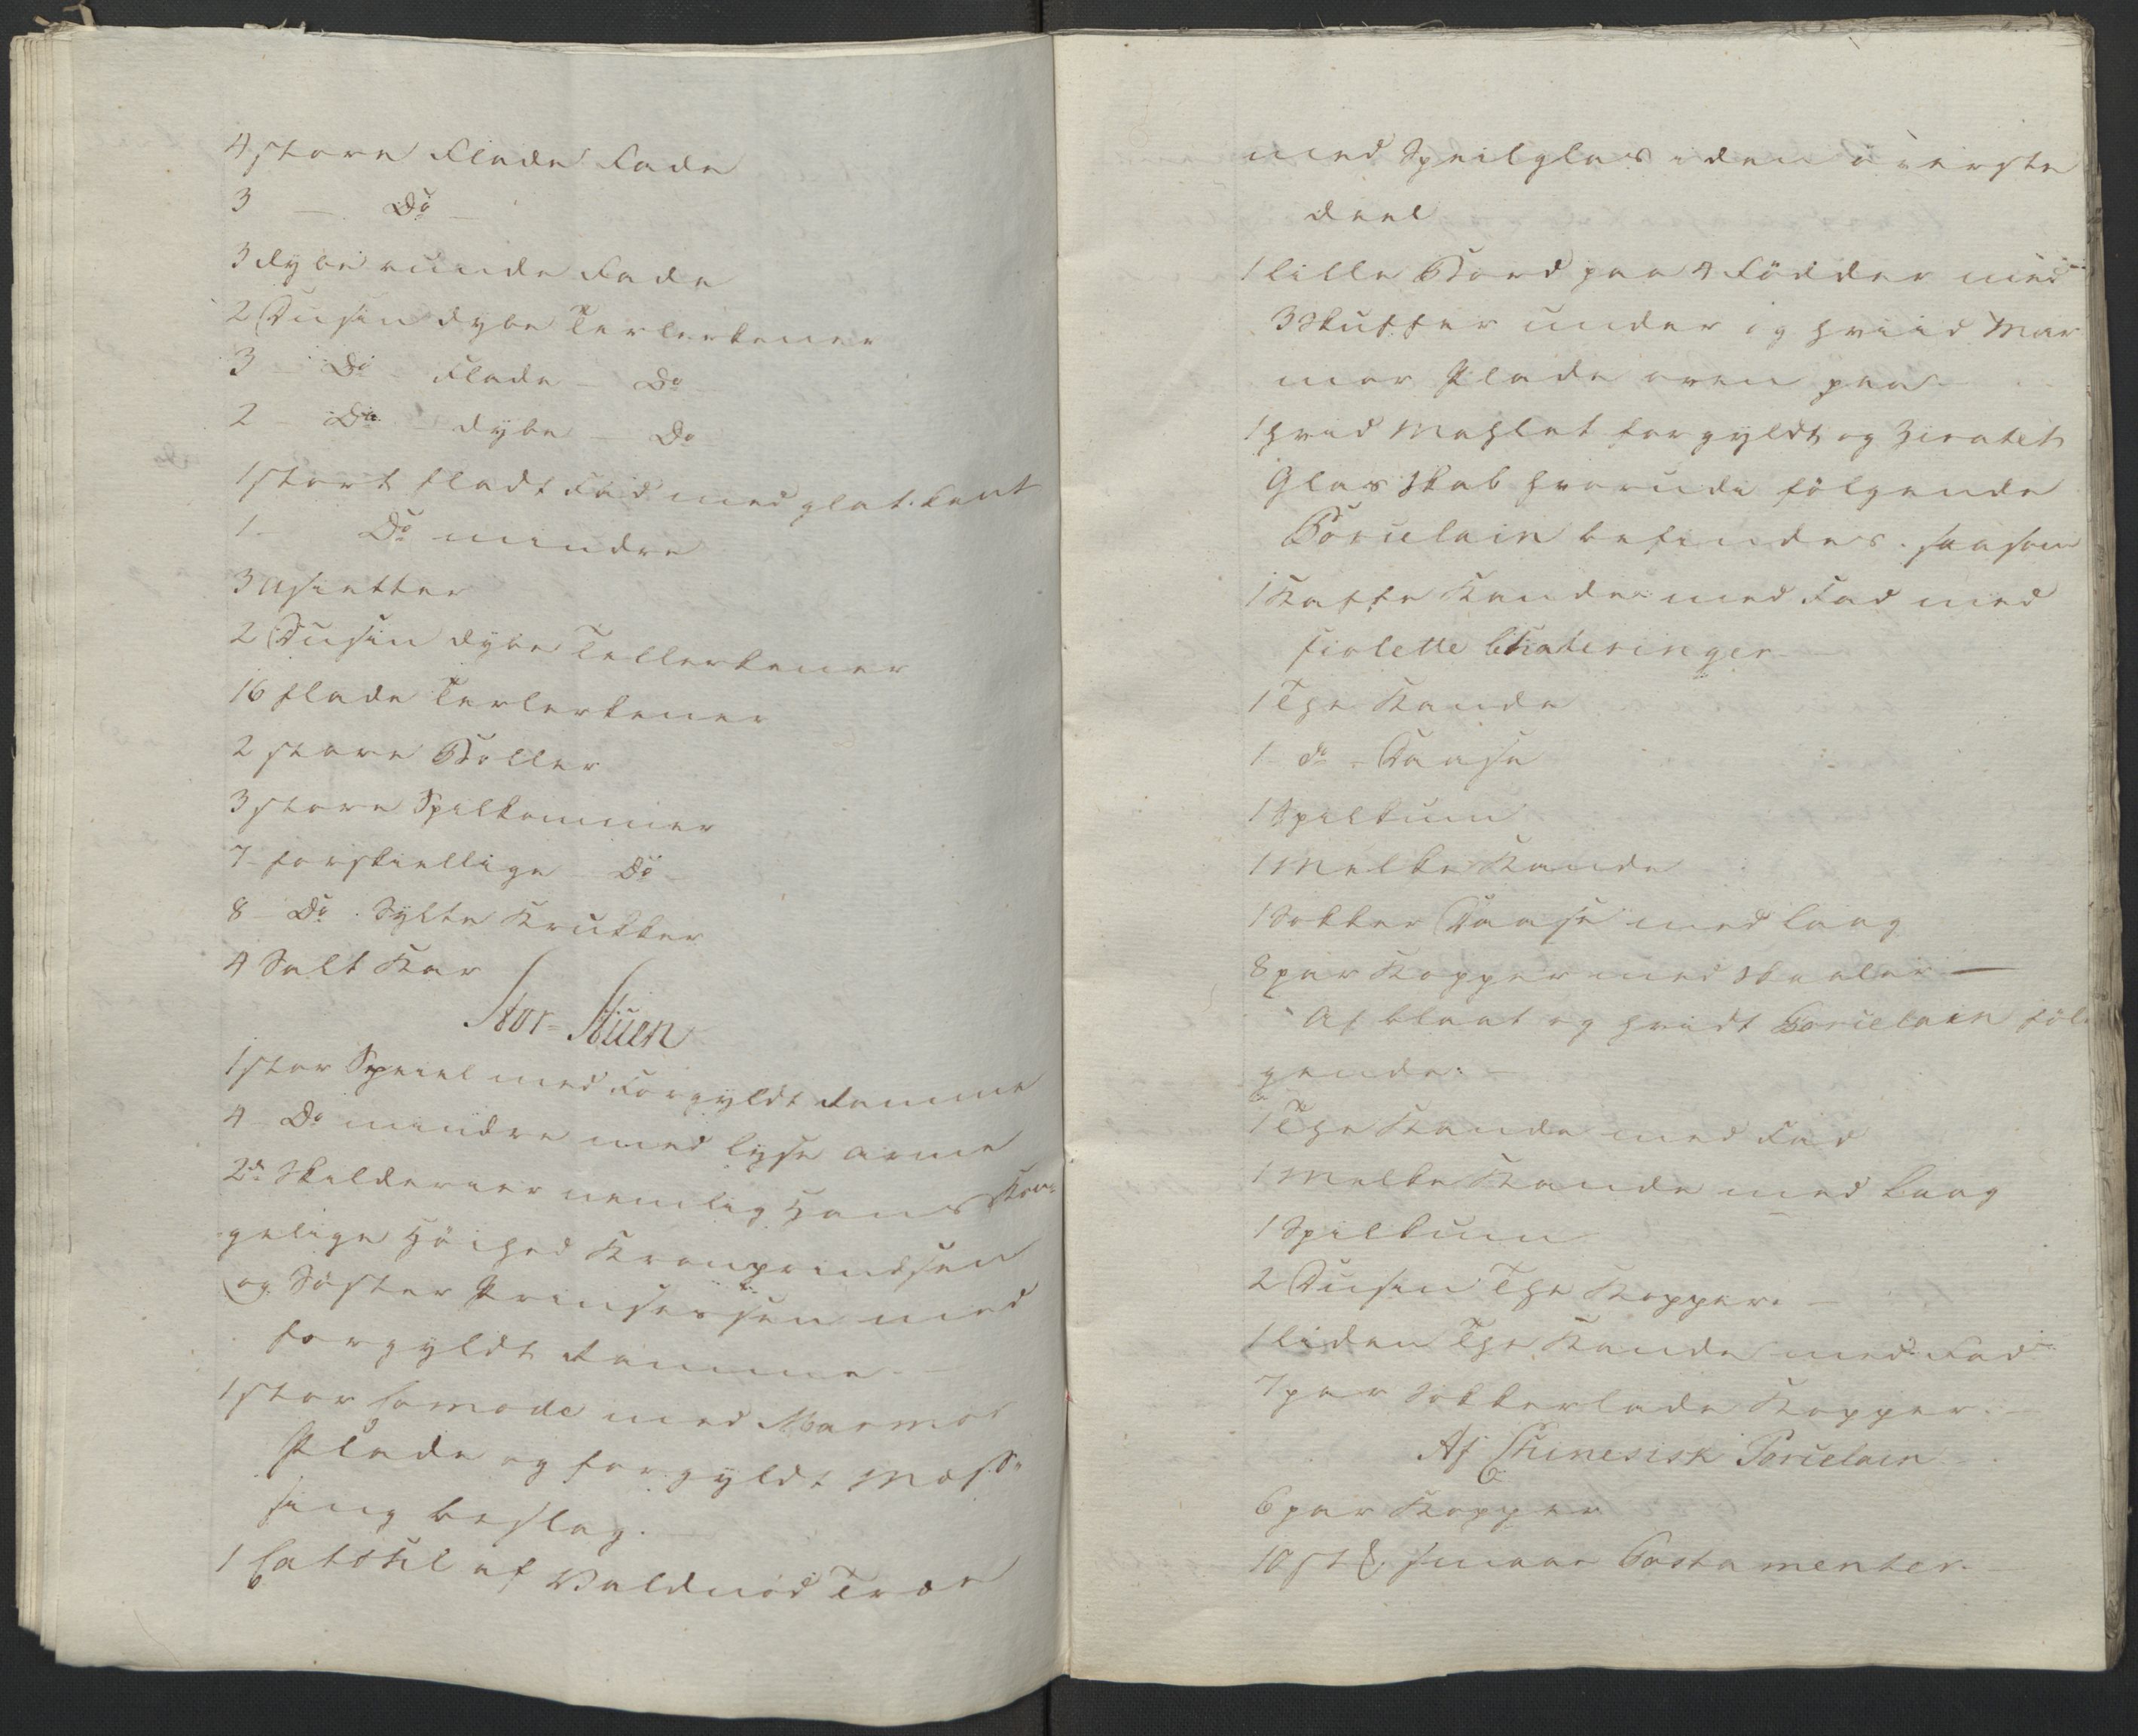 4 store Flade Fade
3 — Do —
3 dybe runde Fade
2 Dusin dybe Terlerkener
3 – Do – Flade – Do
2 – Do – dybe – Do
1 stort fladt Fad med glat Kant
1 – Do mindre
3 Asietter
2 Dusin dybe Tellerkener
16 flade Terlerkener
2 store Boller
3 store Spilkommer
7 forskiellige Do –
8 – Do . Sylte Krukker
4 Salt Kar
Stor-Stuen
1 stor Speiel med Forgyldt Ramme
4 Do mindre med lyse arme
2de Skilderier nemlig Hans Kon-
gelige Höihed Kronprindsen
og Söster Prinsessen med
forgyldt Ramme. —
1 stor Comode med Marmor
Plade og forgyldt Mess-
sing beslag. —
1 Catohl af Valdnöd Træe
med Speilglas i den överste
deel
1 lille Bord paa 4 Födder med
3 Skuffer under og hviid Mar
mor Plade oven paa –
1 hvid Mahlet forgyldt og Ziratet
Glas Skab hvorudi fölgende
Porcelain befindes. saasom
1 Kaffe Kande med Fad med
fiolette Chateringer –
1 The Kande
1 do – Daase
1 Spilkum
1 Melke Kande
1 Sokker Daase med laag
8 par Kopper med Skaaler —
Af blaat og hvidt Porcelain föl
gende: –
1 The Kande med Fad
1 Melke Kande med Laag
1 Spilkum
2 Dusin The Kopper. –
1 liden The Kande med Fad
7 par Sokkerlade Kopper. –
Af Chinesisk Porcelain
6 par Kopper
10 stk. smaae Postamenter. –